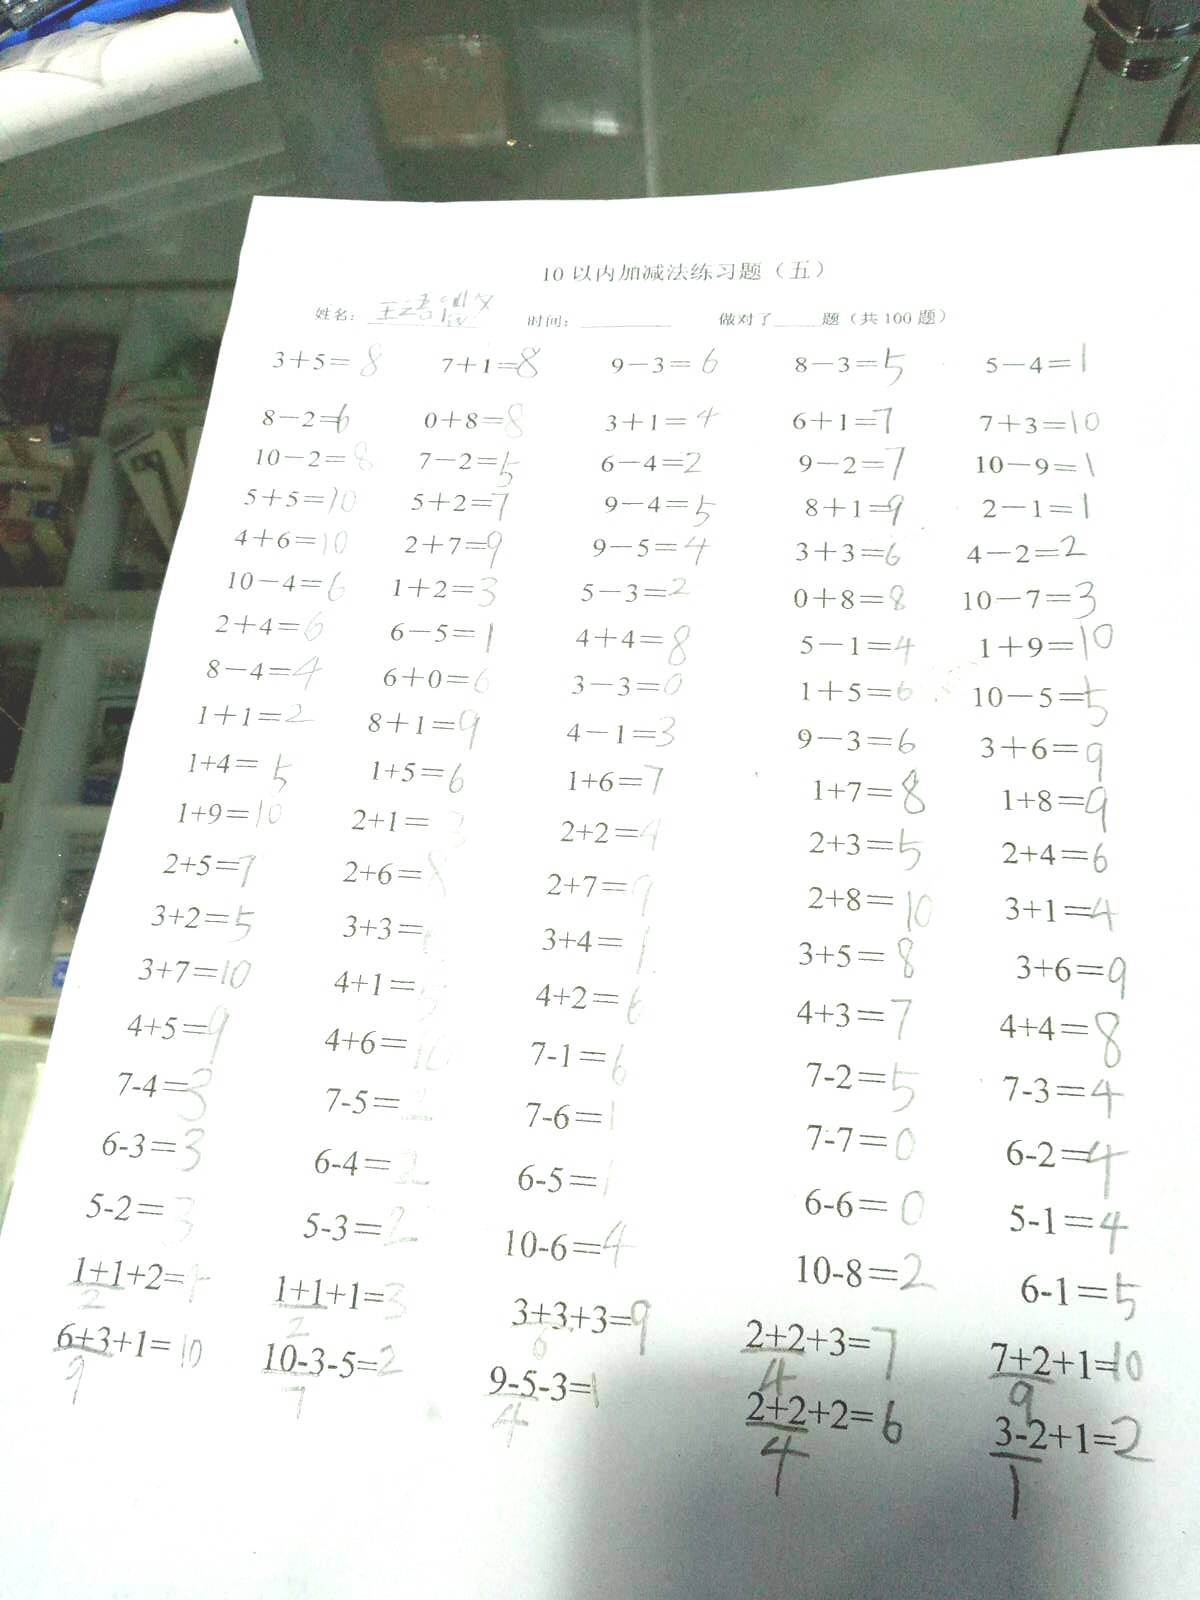 10以内加减法练习题（五）
姓名：王语 时间： 做对了 题（共100题）
3+5=8 7+1=8 9-3=6 8-3=5 5-4=1
8-2=6 0+8=8 3+1=4 6+1=7 7+3=10
10-2=8 7-2=5 6-4=2 9-2=7 10-9=1
5+5=10 5+2=7 9-4=5 8+1=9 2-1=1
4+6=10 2+7=9 9-5=4 3+3=6 4-2=2
10-4=6 1+2=3 5-3=2 0+8=8 10-7=3
2+4=6 6-5=1 4+4=8 5-1=4 1+9=10
8-4=4 6+0=6 3-3=0 1+5=6 10-5=5
1+1=2 8+1=9 4-1=3 9-3=6 3+6=9
1+4=5 1+5=6 1+6=7 1+7=8 1+8=9
1+9=10 2+1=3 2+2=4 2+3=5 2+4=6
2+5=7 2+6=8 2+7=9 2+8=10 3+1=4
3+2=5 3+3= 3+4= 3+5=8 3+6=9
3+7=10 4+1=5 4+2=6 4+3=7 4+4=8
4+5=9 4+6=10 7-1=6 7-2=5 7-3=4
7-4=3 7-5=2 7-6=1 7-7=0 6-2=4
6-3=3 6-4=2 6-5=1 6-6=0 5-1=4
5-2=3 5-3=2 10-6=4 10-8=2 6-1=5
1+1+2= 1+1+1=3 3+3+3=9 2+2+3=7 7+2+1=10
2 2 6 4 9
6+3+1=10 10-3-5=2 9-5-3=1 2+2+2=6 3-2+1=2
9 7 4 4 1